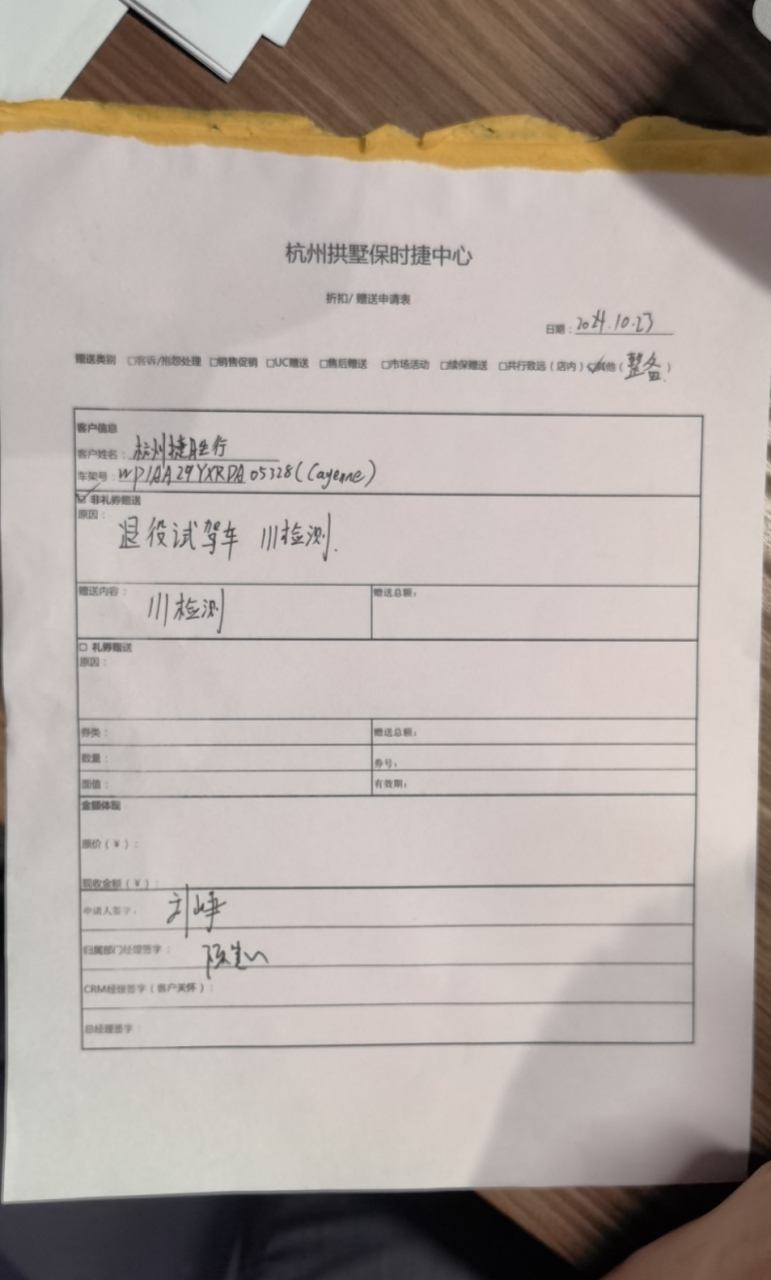 杭州拱墅保时捷中心
折扣/赠送申请表
日期：2024.10.23
赠送类别 □客诉/抱怨处理 □销售促销 □UC赠送 □售后赠送 □市场活动 □续保赠送 □共行致远（店内）☑其他（整备）
客户信息
客户姓名：杭州捷胜行
车架号：WP1AA29YXRDA05328(Cayenne)
☑ 非礼券赠送
原因：
退役试驾车 111检测.
赠送内容：111检测 赠送总额：
□ 礼券赠送
原因：
券类： 赠送总额：
数量： 券号：
面值： 有效期：
金额体现
原价（¥）：
现收金额（¥）：
申请人签字：刘峰
归属部门经理签字：陈
CRM经理签字（客户关怀）：
总经理签字：